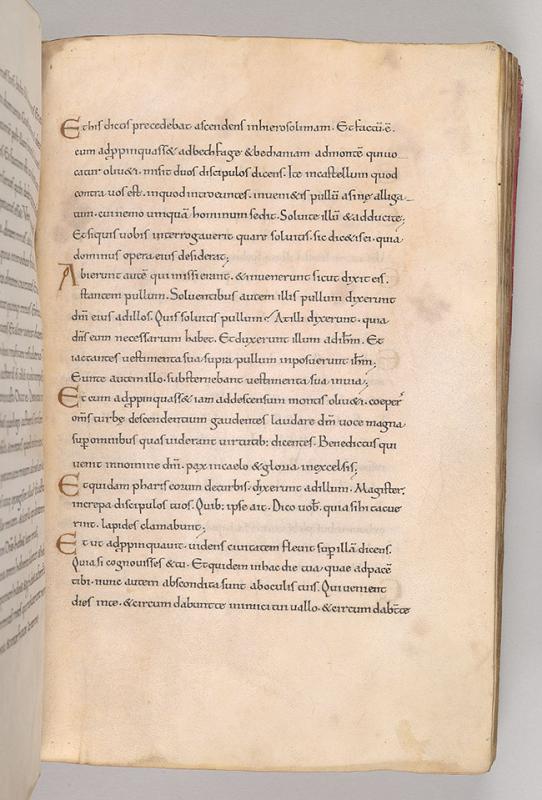 Ethis dictis precedebat ascendens inhierosolimam· Et factū ē·
cum adp̄pinquass& adbethfage &bethaniam admontē quiuo
catur oliu&i· misit duos discipulos dicens· Ite incastellum quod
contra uos est· inquod introeuntes· inueni&is pullū asinę alliga
tum· cui nemo umquā hominum sedit· Soluite illū &adducite;
Etsiquis uobis interrogauerit quare soluitis· sic dic&is ei· quia
dominus opera eius desiderat;
Abierunt autē qui missi erant· &inuenerunt sicut dixit eis·
stantem pullum· Soluentibus autem illis pullum dixerunt
dn̄i eius adillos· Quis soluitis pullum; Atilli dixerunt· quia
dn̄s eum necessarium habet· Et duxerunt illum adih̄m· Et
iactantes uestimenta sua supra pullum inposuerunt ih̄m;
Eunte autem illo· substernebant uestimenta sua inuia;
Et cum adp̄pinquass& iam addescensum montis oliu&i· coeper̄
om̄s turbę descendentium gaudentes laudare dm̄ uoce magna
sup omnibus quas uiderant uirtutib; dicentes· Benedictus qui
uenit innomine dn̄i· pax incaelo &gloria inexcelsis;
Et quidam phariseorum deturbis· dixerunt adillum· Magister·
increpa discipulos tuos· Quib; ipse ait· Dico uob̄· quia sihi tacue
rint· lapides clamabunt;
Et ut adp̄pinquauit· uidens ciuitatem fleuit sup illā dicens·
Quia si cognouisses &tu· Etquidem inhac die tua· quae adpacē
tibi· nunc autem abscondita sunt aboculis tuis· Qui uenient
dies inte· &circum dabunt te inimici tui uallo· &circum dab̄t te